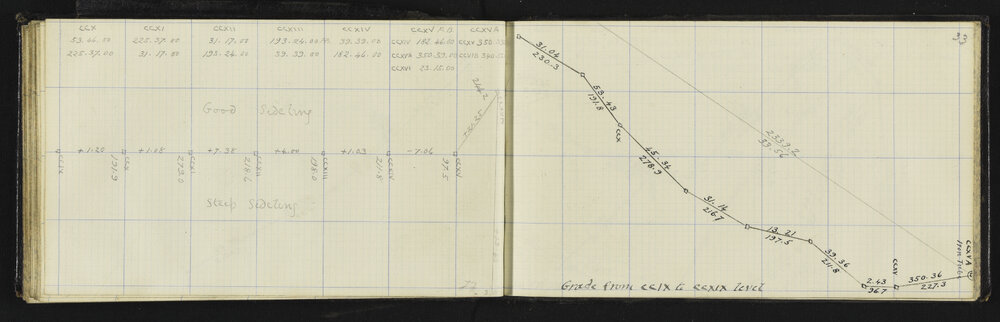 CCX CCXI CCXII CCXIII CCXIV CCXV A.B CCXV A
53.44.00 225.37.00 31.17.00 193.24.00 39.39.00 CCXIV 182.46.00 CCXV 350.39
225.37.00 31.17.00 193.24.00 39.39.00 182.46.00 CCXVA 350.39.00 CCXVB
CCXVI 23.15.00
244.2
Good Sideling
+1.20 +1.08 +7.38 +4.00 +1.03 -7.06
CCIX 191.9 CCX 279.0 CCXI 218.6 CCXII 198.0 CCXIII 211.8 CCXIV 97.5 CCXV
Steep Sideling
33
31.04
230.3
53.43
191.8
CCX
45.34
278.9
31.14
216.7
13.21
197.5
39.36
211.8
CCXV
2.43
96.7
350.36
227.3
2339.2
39.56
CCXVA
Iron Tube
Grade from CCIX to CCXIX level